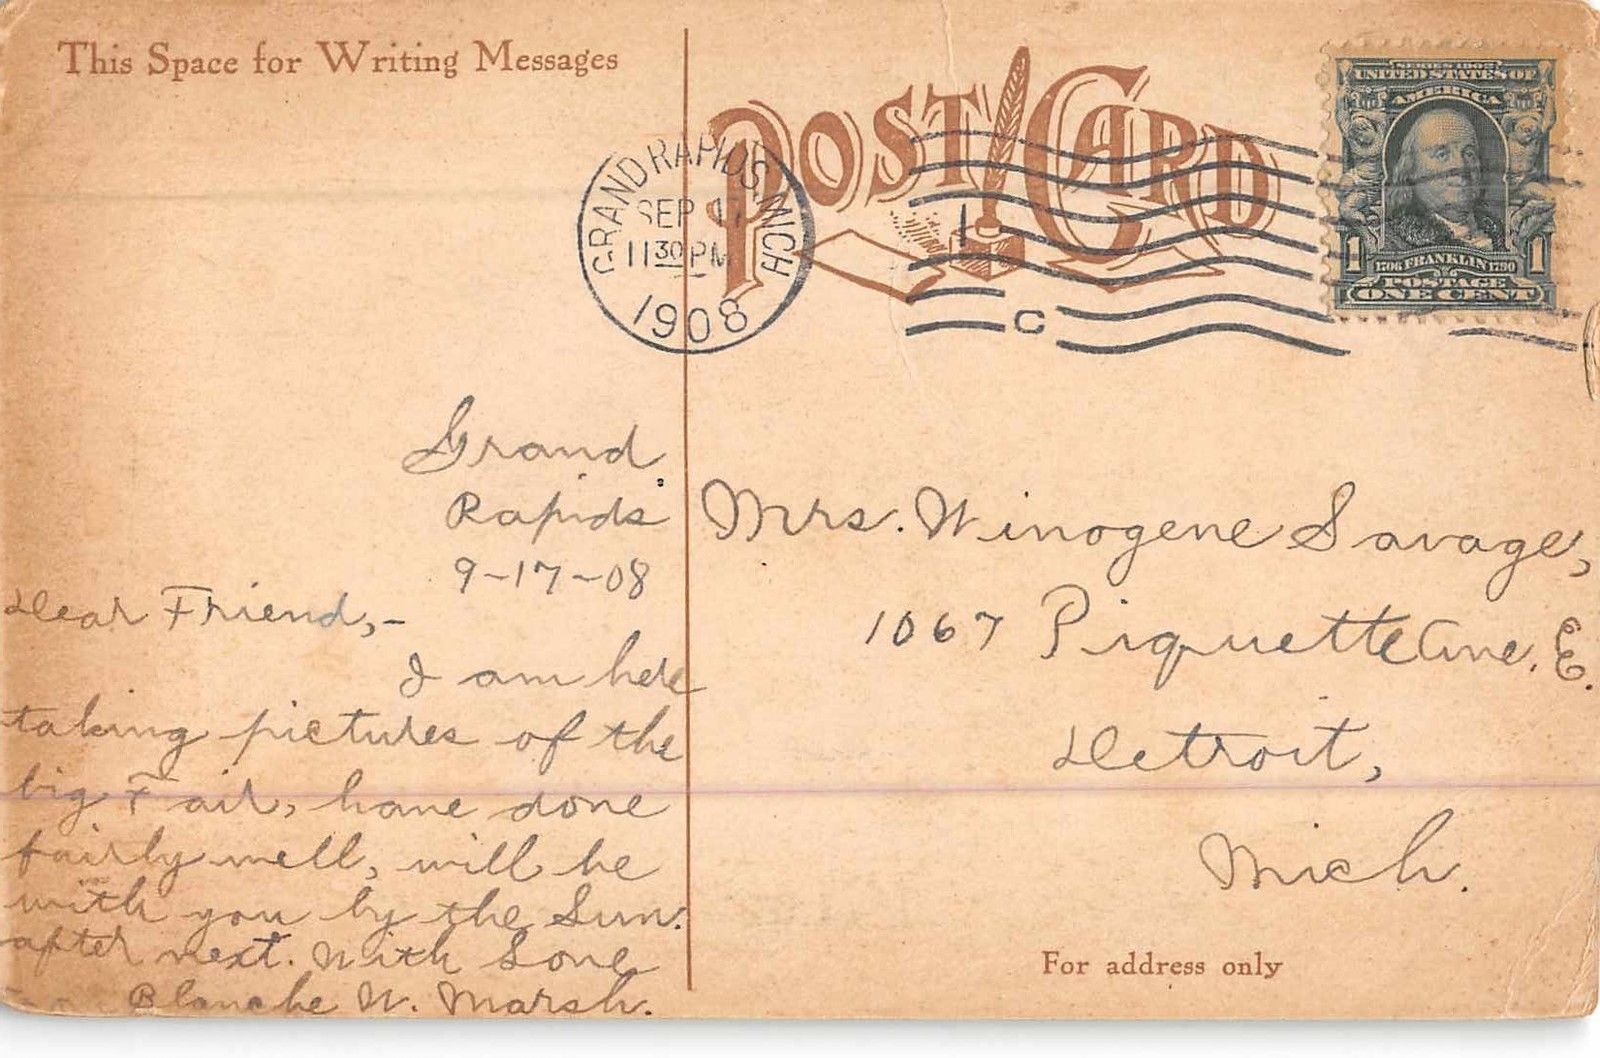 This Space for Writing Messages
POST CARD
GRAND RAPIDS, MICH
SEP 17
11 30 PM
1908
C
SERIES 1902
UNITED STATES OF
AMERICA
1 1
1706 FRANKLIN 1790
POSTAGE
ONE CENT
Grand
Rapids
9-17-08
Dear Friend,-
I am here
taking pictures of the
big Fair, have done
fairly well, will be
with you by the Sun.
after next. With Love
Blanche W. Marsh.
Mrs. Winogene Savage,
1067 Piquette Ave. E.
Detroit,
Mich.
For address only